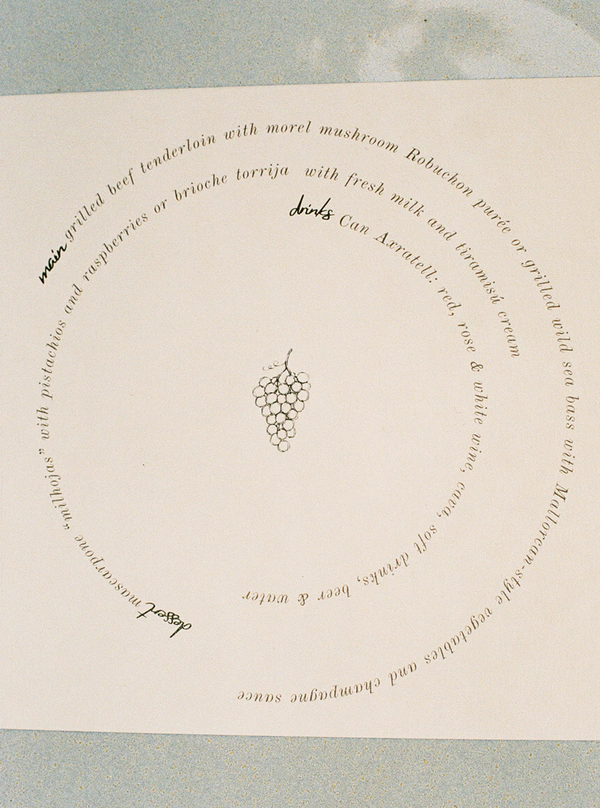 main grilled beef tenderloin with morel mushroom Robuchon purée or grilled wild sea bass with Mallorcan-style vegetables and champagne sauce
dessert mascarpone "milhojas" with pistachios and raspberries or brioche torrija with fresh milk and tiramisú cream
drinks Can Axratell: red, rose & white wine, cava, soft drinks, beer & water